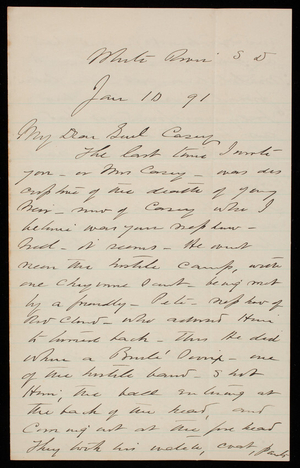 White River S D
Jan 10 91
My Dear Genl Casey
The last time I wrote
you - or Mrs Casey - was des
of the death of young
of Casey who I
believe was your nephew -
Ned - it seems - He went
near the hostile camp, with
one Cheyenne Scout - being met
by a friendly - Pete - nephew of
Red Cloud - who advised Him
to turned back - this He did
When a Brulé - one
of the hostile band - Shot
Him, the ball entering at
the back of the head, and
Coming out at the fore head
They took his watch, coat,